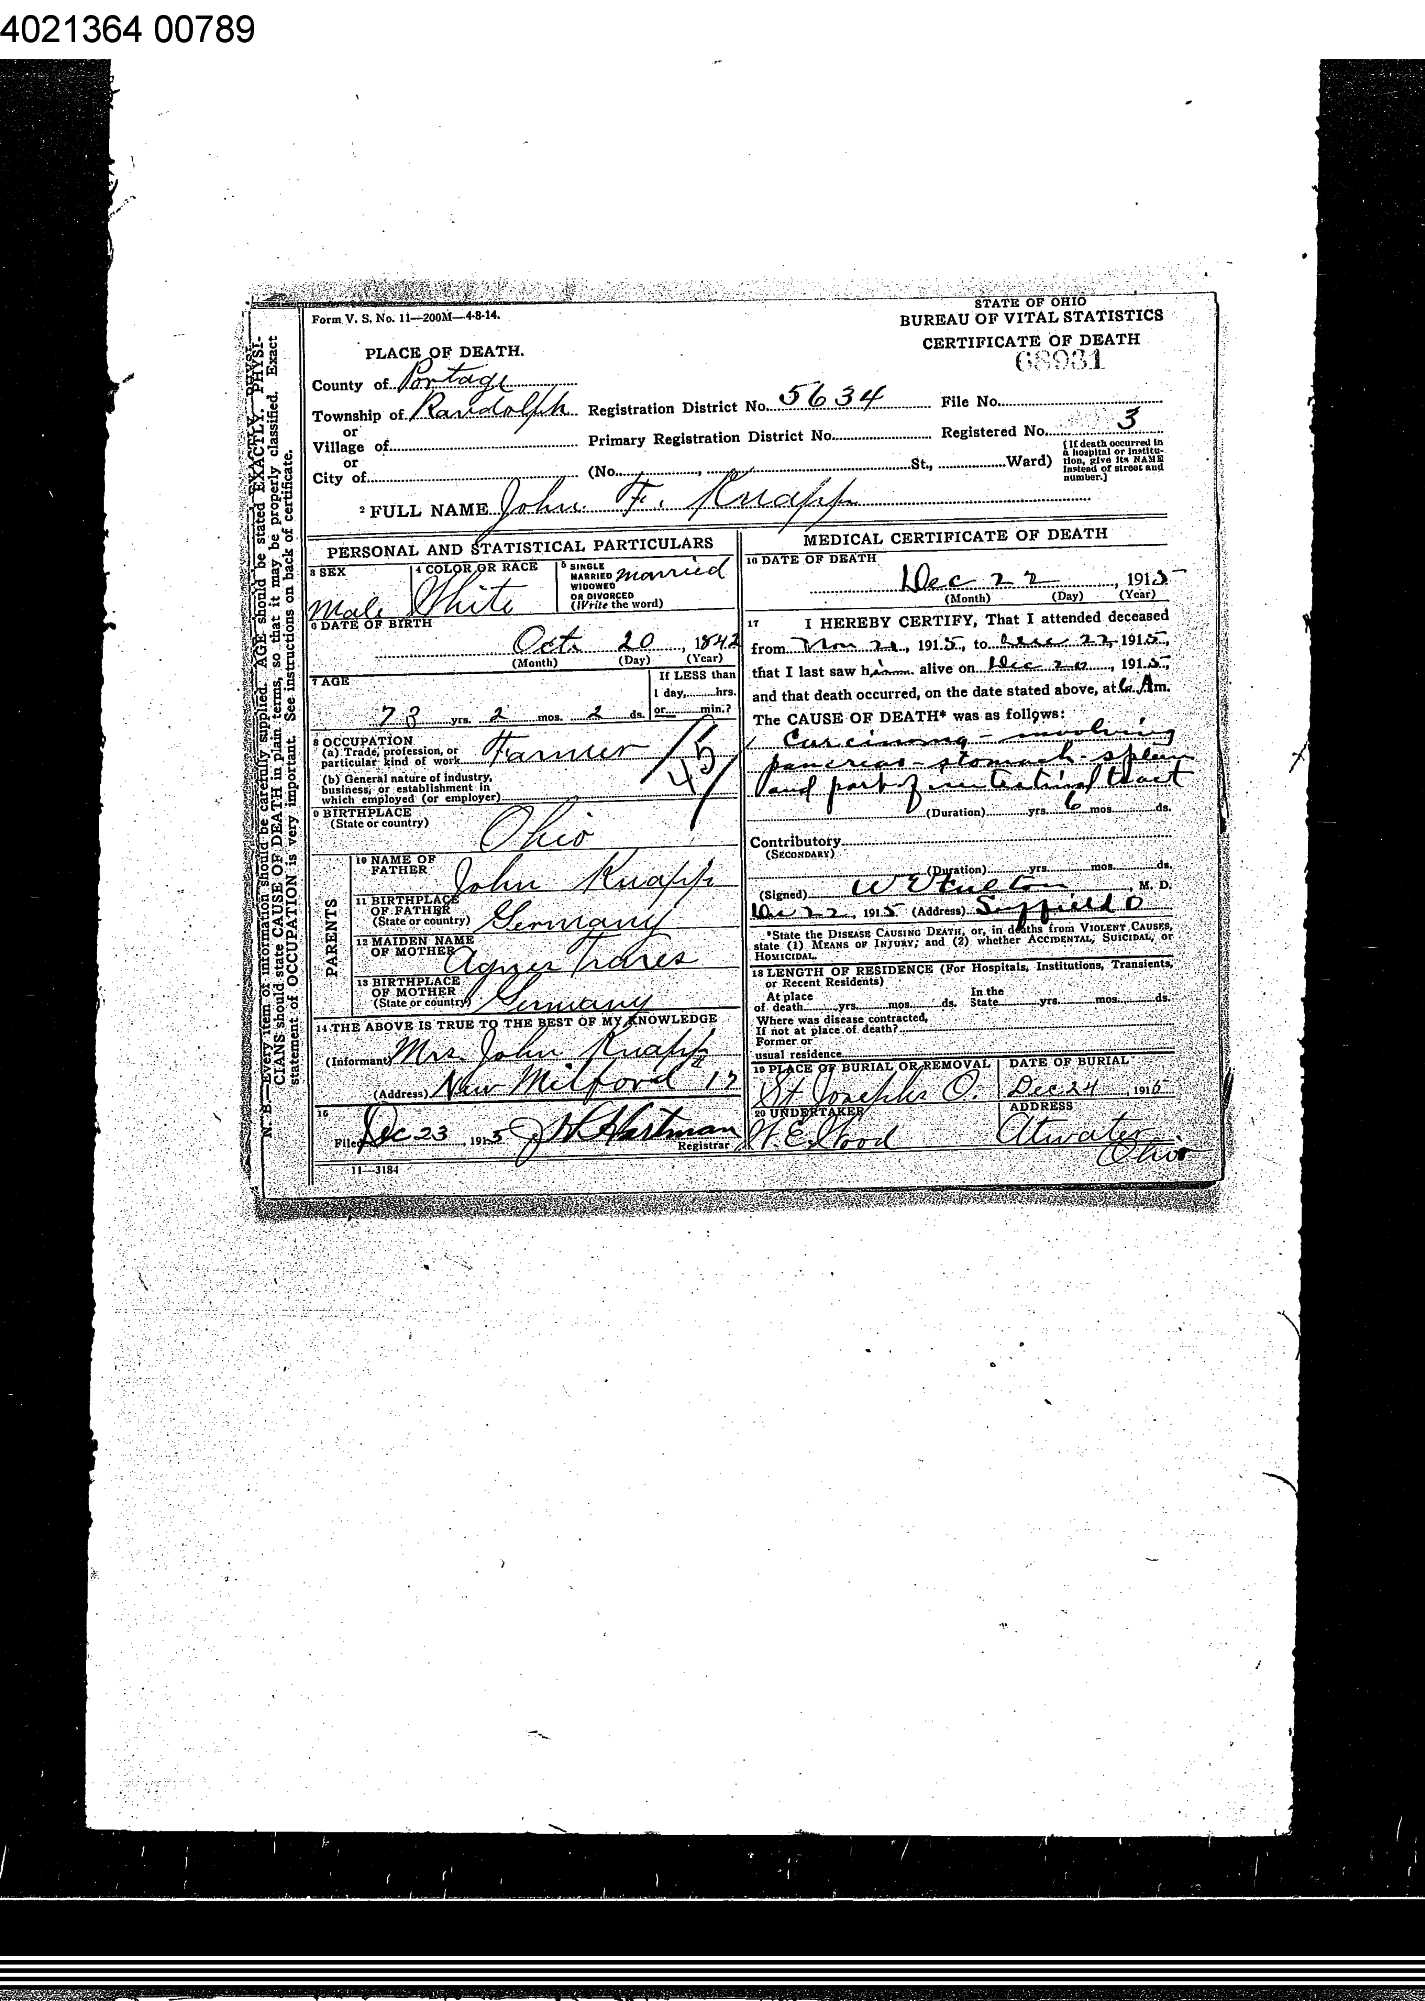 4021364 00789
Form V. S. No. 11—200M—4-8-14.
STATE OF OHIO
BUREAU OF VITAL STATISTICS
CERTIFICATE OF DEATH
68931
PLACE OF DEATH.
County of Portage
Township of Randolph Registration District No. 5634 File No.
or
Village of Primary Registration District No. Registered No. 3
or
City of (No. , St., Ward)
(If death occurred in a hospital or institution, give its NAME instead of street and number.)
2 FULL NAME John F. Knapp
PERSONAL AND STATISTICAL PARTICULARS
3 SEX
Male
4 COLOR OR RACE
White
5 SINGLE
MARRIED
WIDOWED
OR DIVORCED
(Write the word)
Married
6 DATE OF BIRTH
Oct. 20, 1842
(Month) (Day) (Year)
7 AGE
73 yrs. 2 mos. 2 ds.
If LESS than
1 day, hrs.
or min.?
8 OCCUPATION
(a) Trade, profession, or
particular kind of work Farmer
(b) General nature of industry,
business, or establishment in
which employed (or employer)
9 BIRTHPLACE
(State or country)
Ohio
PARENTS
10 NAME OF
FATHER
John Knapp
11 BIRTHPLACE
OF FATHER
(State or country)
Germany
12 MAIDEN NAME
OF MOTHER
Agnes
13 BIRTHPLACE
OF MOTHER
(State or country)
Germany
14 THE ABOVE IS TRUE TO THE BEST OF MY KNOWLEDGE
(Informant) Mrs. John Knapp
(Address) New Milford
15
Filed Dec 23, 1915 Hartman
Registrar
11—3184
MEDICAL CERTIFICATE OF DEATH
16 DATE OF DEATH
Dec 22, 1915
(Month) (Day) (Year)
17 I HEREBY CERTIFY, That I attended deceased
from Nov 21, 1915, to Dec 22, 1915,
that I last saw him alive on Dec 20, 1915,
and that death occurred, on the date stated above, at 6 Am.
The CAUSE OF DEATH* was as follows:
Carcinoma - involving
pancreas - stomach - spleen
and part of intestinal tract
(Duration) yrs. 6 mos. ds.
Contributory
(SECONDARY)
(Duration) yrs. mos. ds.
(Signed) W E Fulton, M. D.
Dec 22, 1915 (Address) Suffield O
*State the DISEASE CAUSING DEATH, or, in deaths from VIOLENT CAUSES,
state (1) MEANS OF INJURY; and (2) whether ACCIDENTAL, SUICIDAL, or
HOMICIDAL.
18 LENGTH OF RESIDENCE (For Hospitals, Institutions, Transients,
or Recent Residents)
At place
of death yrs. mos. ds.
In the
State yrs. mos. ds.
Where was disease contracted,
If not at place of death?
Former or
usual residence
19 PLACE OF BURIAL OR REMOVAL
St Josephs O.
DATE OF BURIAL
Dec 24, 1915
20 UNDERTAKER
W. E. Wood
ADDRESS
Atwater
Ohio
N. B.—Every item of information should be carefully supplied. AGE should be stated EXACTLY. PHYSI-
CIANS should state CAUSE OF DEATH in plain terms, so that it may be properly classified. Exact
statement of OCCUPATION is very important. See instructions on back of certificate.